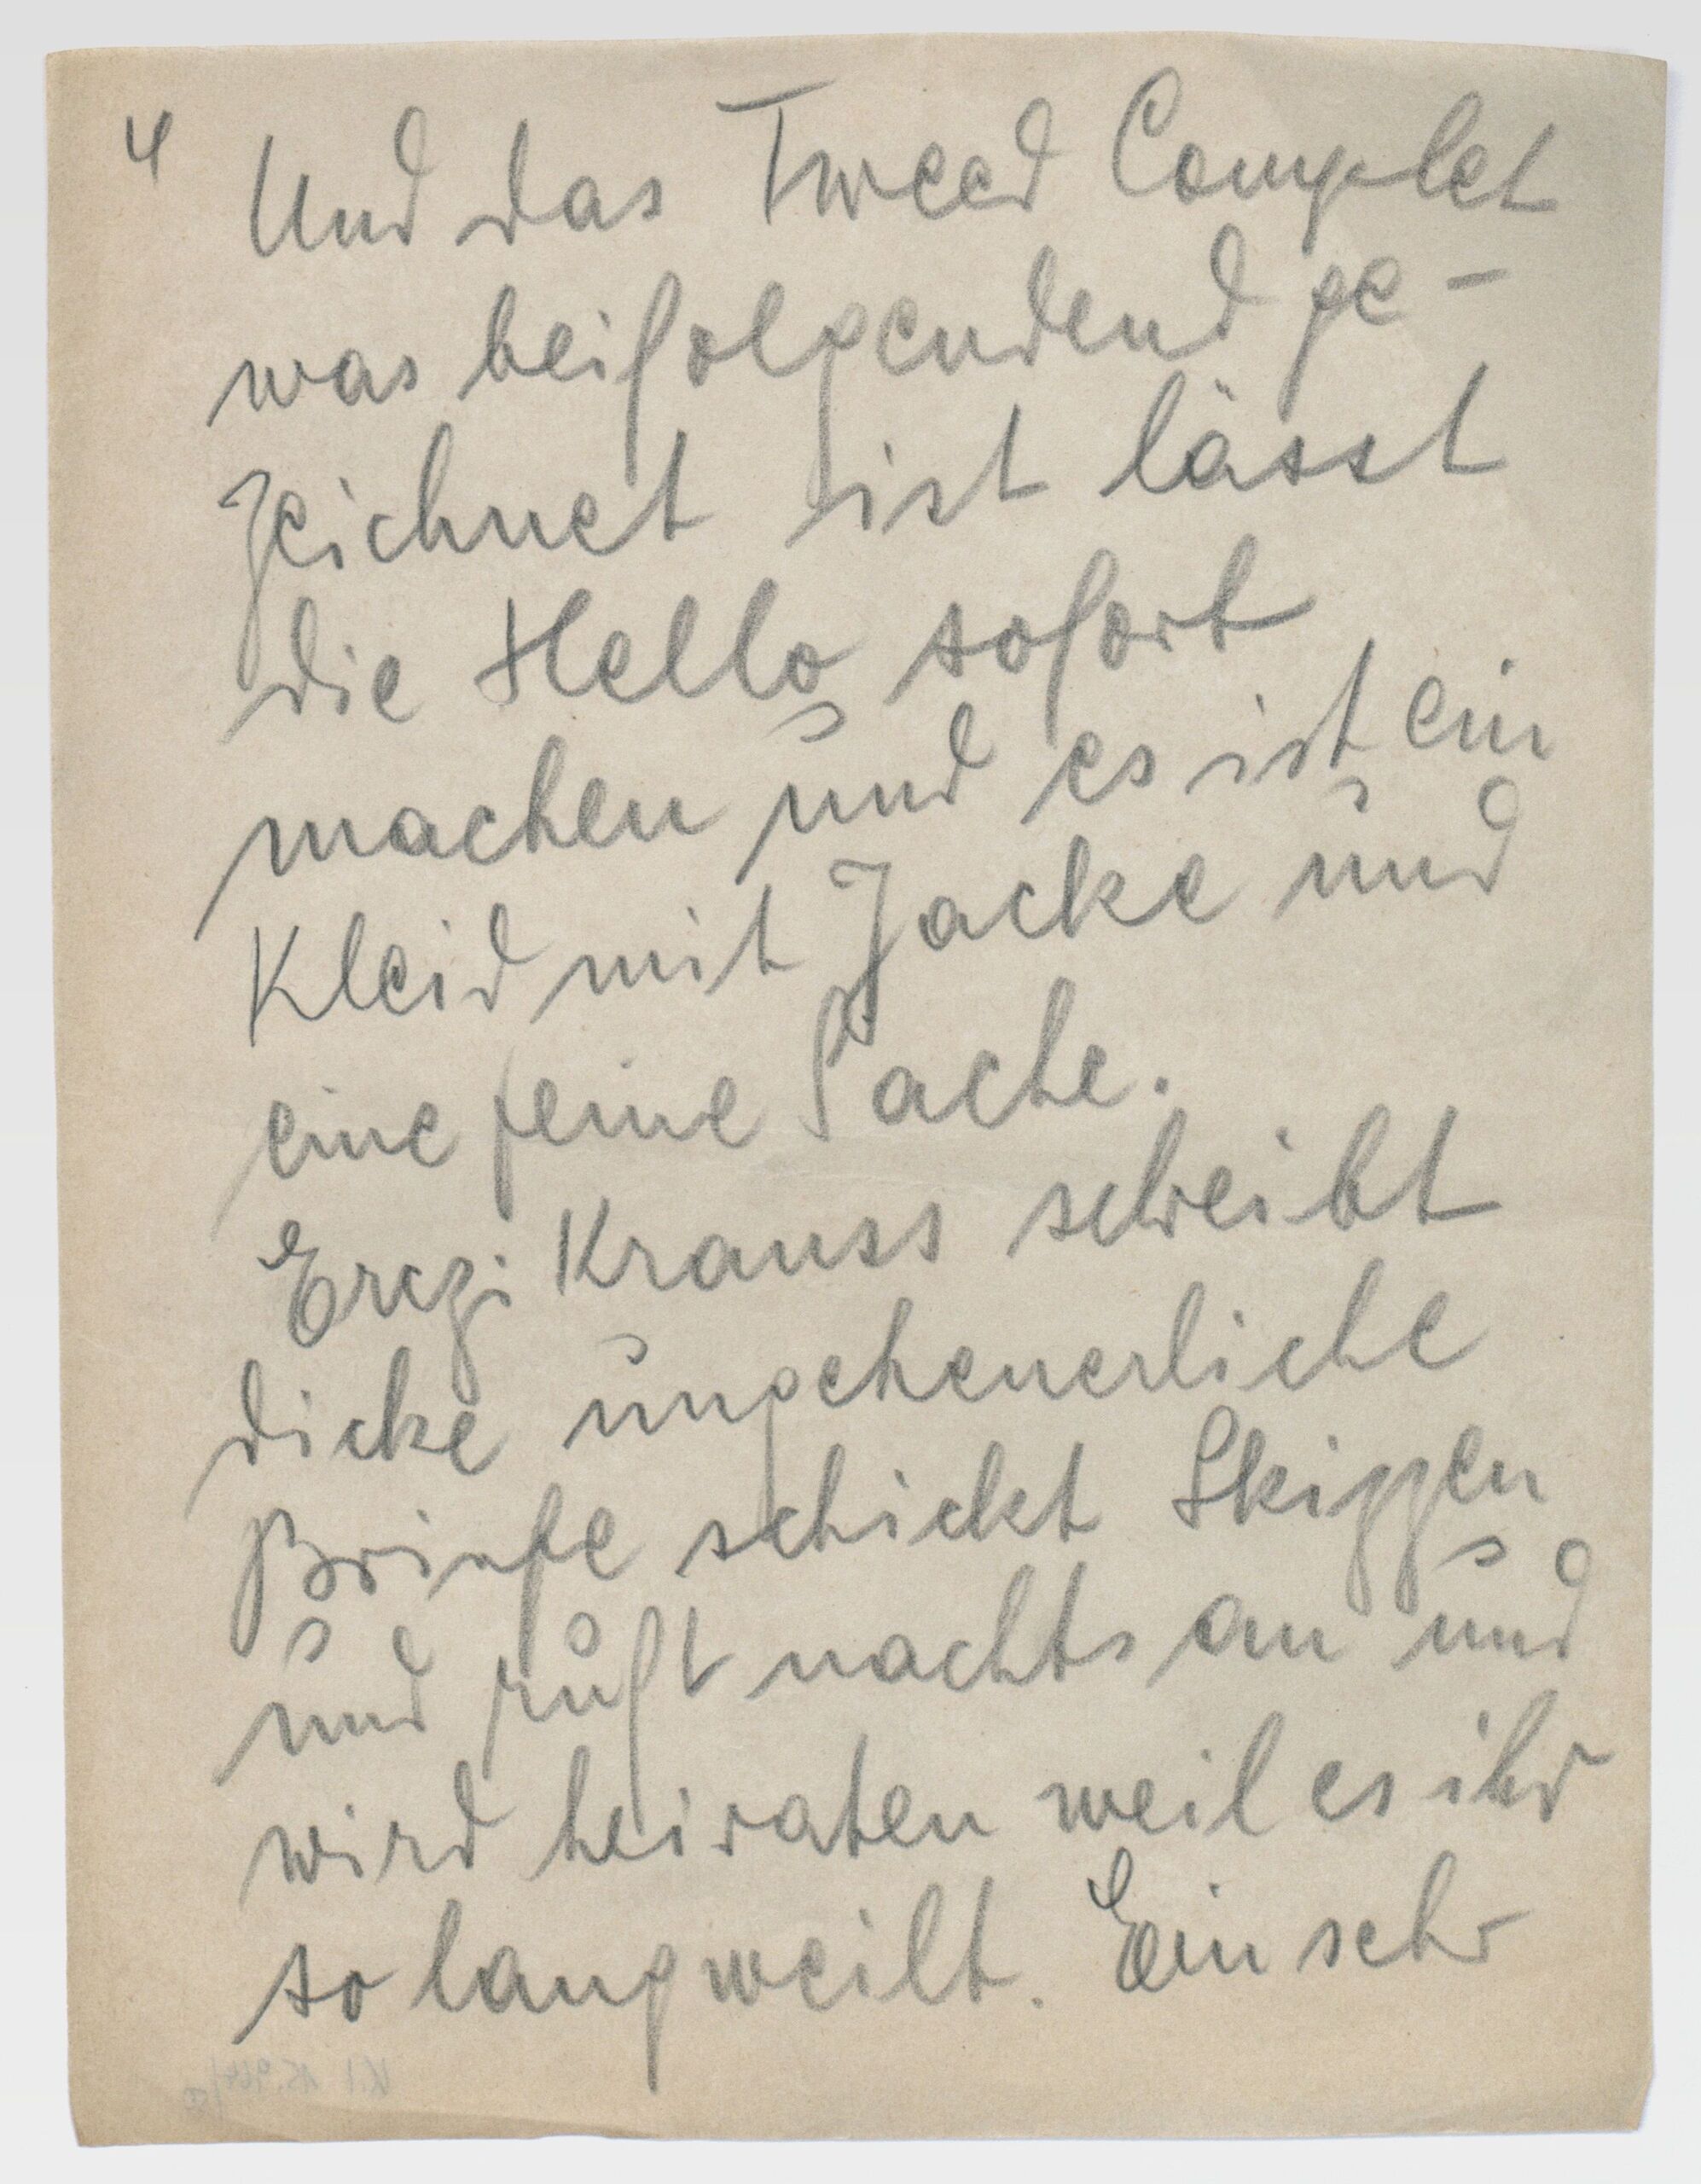 4 Und das Tweed Complet
was beifolgendend ge-
zeichnet ist lässt
die Hello sofort
machen und es ist ein
Kleid mit Jacke und
eine feine Sache.
Erczi Krauss schreibt
dicke ungeheuerliche
Briefe schickt Skizzen
und ruft nachts an und
wird heiraten weil es ihr
so langweilt. Ein sehr